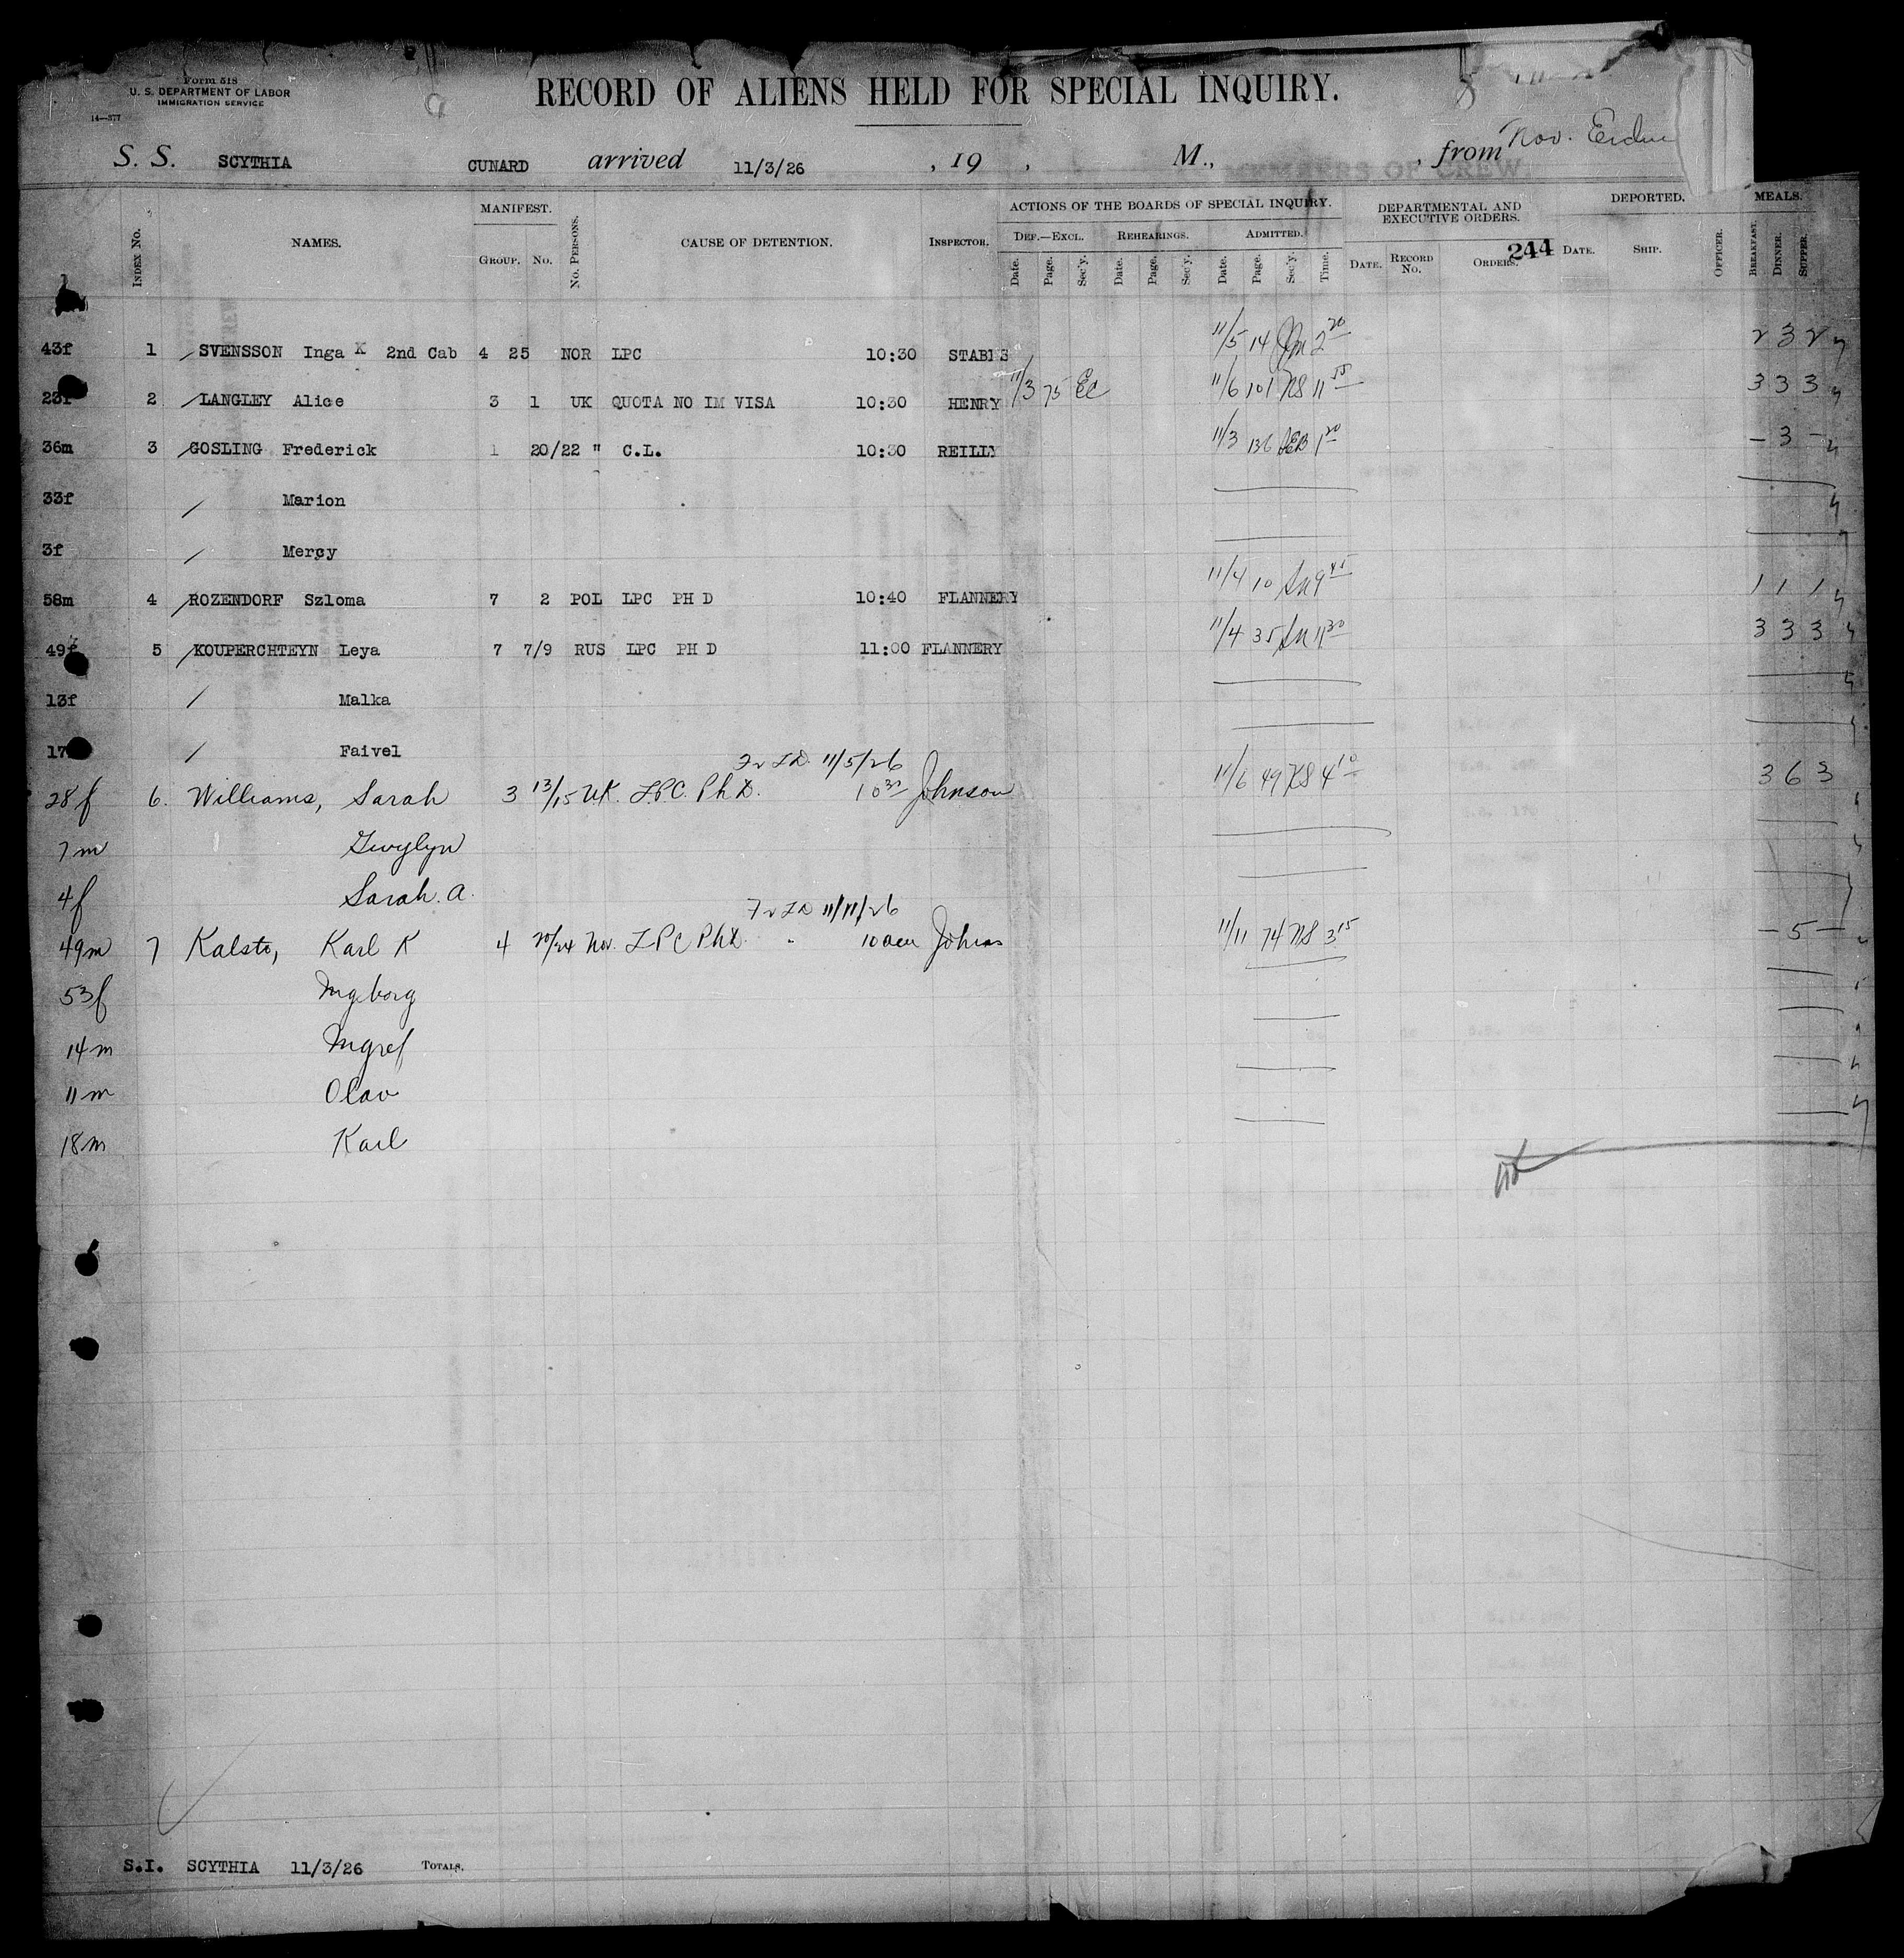 Form 518
U. S. DEPARTMENT OF LABOR
IMMIGRATION SERVICE
14—377
RECORD OF ALIENS HELD FOR SPECIAL INQUIRY.
S. S. SCYTHIA CUNARD arrived 11/3/26 , 19 , M., , from Nov.
MEMBERS OF CREW
INDEX No. NAMES. MANIFEST. GROUP. No. No. PERSONS. CAUSE OF DETENTION. INSPECTOR. ACTIONS OF THE BOARDS OF SPECIAL INQUIRY. DEPARTMENTAL AND EXECUTIVE ORDERS. DEPORTED. MEALS.
DEF.—EXCL. REHEARINGS. ADMITTED.
Date. Page. Sec'y. Date. Page. Sec'y. Date. Page. Sec'y. Time. DATE. RECORD No. ORDERS. 244 DATE. SHIP. OFFICER. BREAKFAST. DINNER. SUPPER.
43f 1 SVENSSON Inga K 2nd Cab 4 25 NOR LPC 10:30 STABBS 11/5 14 2 20 2 3 2
23f 2 LANGLEY Alice 3 1 UK QUOTA NO IM VISA 10:30 HENRY 11/3 75 EC 11/6 101 NS 11 55 3 3 3
36m 3 GOSLING Frederick 1 20/22 " C.L. 10:30 REILLY 11/3 136 1 20 — 3 —
33f Marion
3f Mercy
58m 4 ROZENDORF Szloma 7 2 POL LPC PH D 10:40 FLANNERY 11/4 10 9 45 1 1 1
49f 5 KOUPERCHTEYN Leya 7 7/9 RUS LPC PH D 11:00 FLANNERY 11/4 35 11 30 3 3 3
13f Malka
17 Faivel
11/5/26
28f 6. Williams, Sarah 3 13/15 UK. L.P.C. Ph D. 10 30 Johnson 11/6 49 NS 4 10 3 6 3
7m Gwylyn
4f Sarah. A.
11/11/26
49m 7 Kalsto, Karl K 4 20/24 Nor. LPC Ph D. 10 am 11/11 74 NS 3 15 — 5 —
53f Ingeborg
14m
11m Olav
18m Karl
S.I. SCYTHIA 11/3/26 TOTALS.